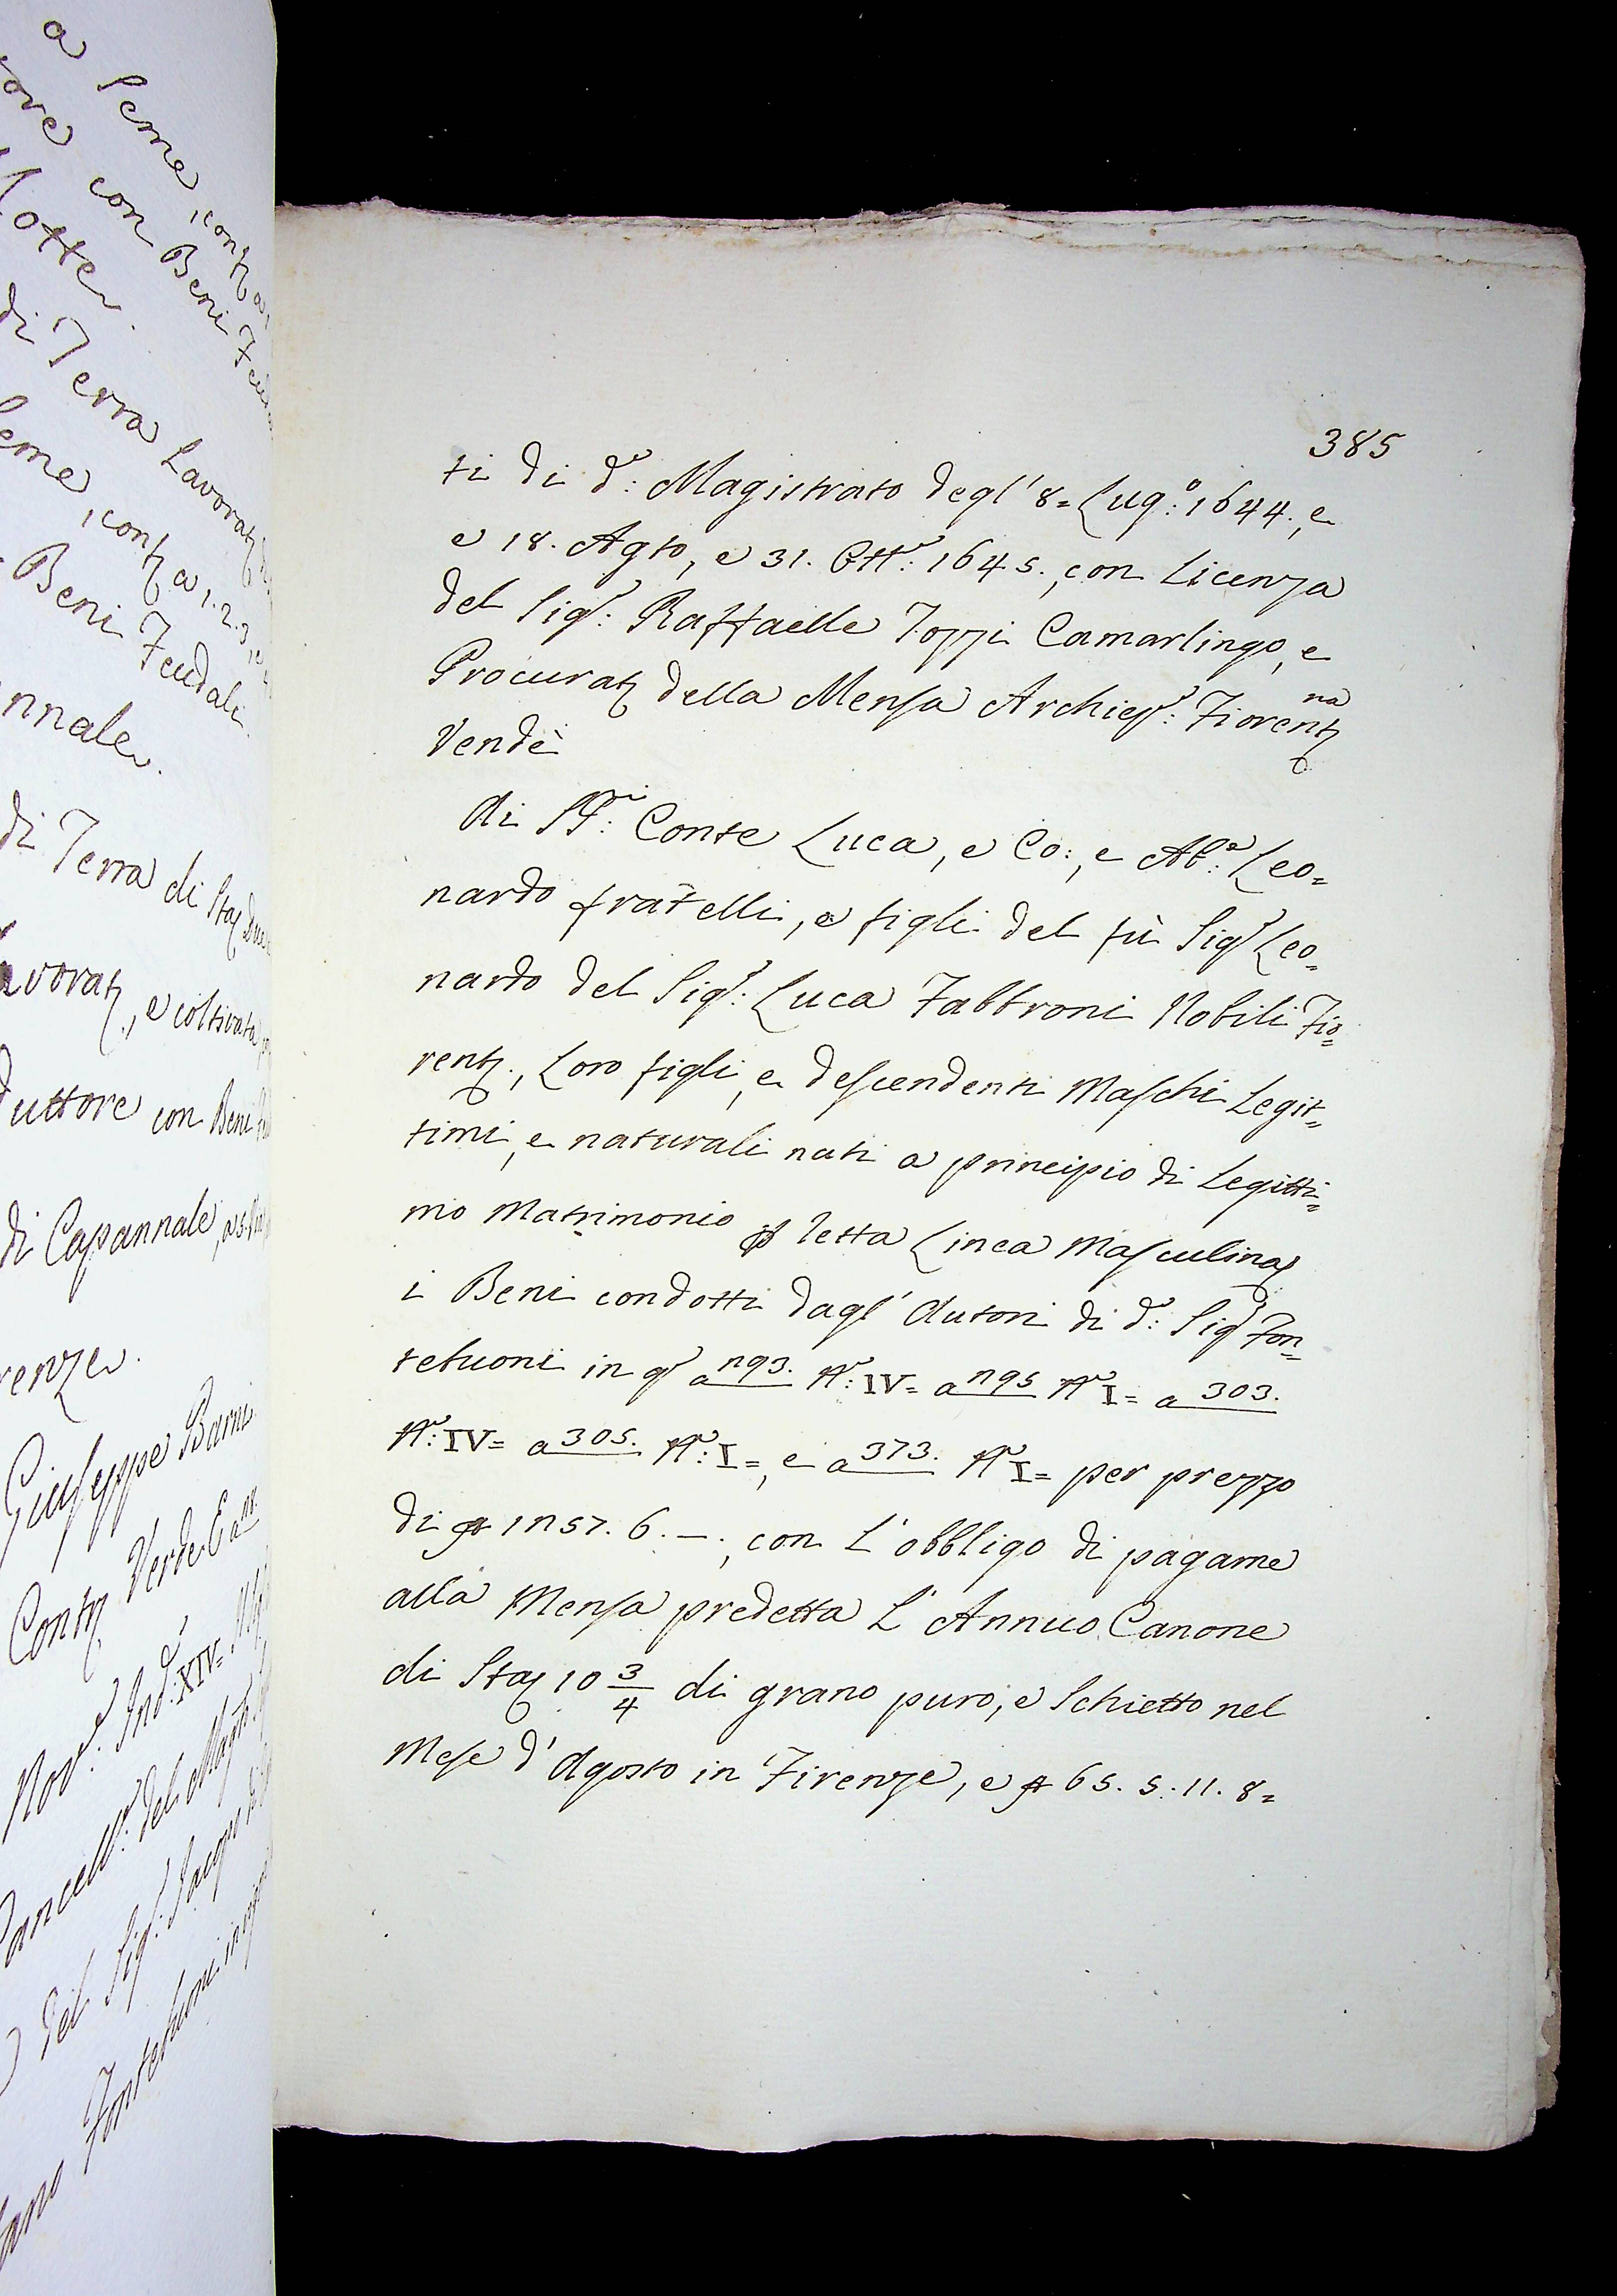 a seme, conf a
ore con Beni Feud
otte.
di Terra Lavorat
eme, conf a 1. 2. 3. e 4
Beni Feudali
nnale.
di Terra di Sta Due
avorat, e coltivata
duttore con Beni
di Capannale, a s.
renze.
Giuseppe Barni
Cont Verde E a
Nov: Ind: XIV=
Cancell: del Mag
del Sig: Jacopo
Fontebuoni in
385
ti di d:o Magistrato degl' 8= Lug:o 1644., e
e 18. Agto, e 31. Ott:e 1645., con Licenza
del Sig:r Raffaelle Tozzi Camarlingo, e
Procurat della Mensa Archiep: Fiorent na
Vendè
Ai SS:ri Conte Luca, e Co:, e Ab:e Leo=
nardo fratelli, e figli del fù Sig Leo=
nardo del Sig:r Luca Fabbroni Nobili Fio=
rent., Loro figli, e descendenti Maschi Legit=
timi, e naturali nati a principio di Legitti=
mo Matrimonio p retta Linea Masculina
i Beni condotti dagl' Autori di d:o Sig Fon=
tebuoni in q a 293. N:o IV= a 295 N:o I= a 303.
N:o IV= a 305. N:o I=, e a 373. N:o I= per prezzo
di 1257. 6. —., con L' obbligo di pagarne
alla Mensa predetta L' Annuo Canone
di Sta 10 3/4 di grano puro, e Schietto nel
Mese d' Agosto in Firenze, e 65. 5. 11. 8=